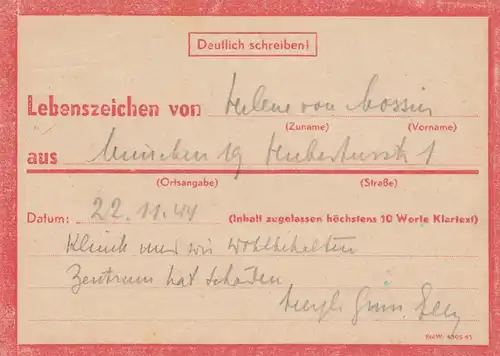 Deutlich schreiben!
Lebenszeichen von Helene von Bossin
(Zuname) (Vorname)
aus München 19 Hubertusstr 1
(Ortsangabe) (Straße)
Datum: 22.11.44 (Inhalt zugelassen höchstens 10 Worte Klartext)
Klinik und wir wohlbehalten
Zentrum hat Schaden